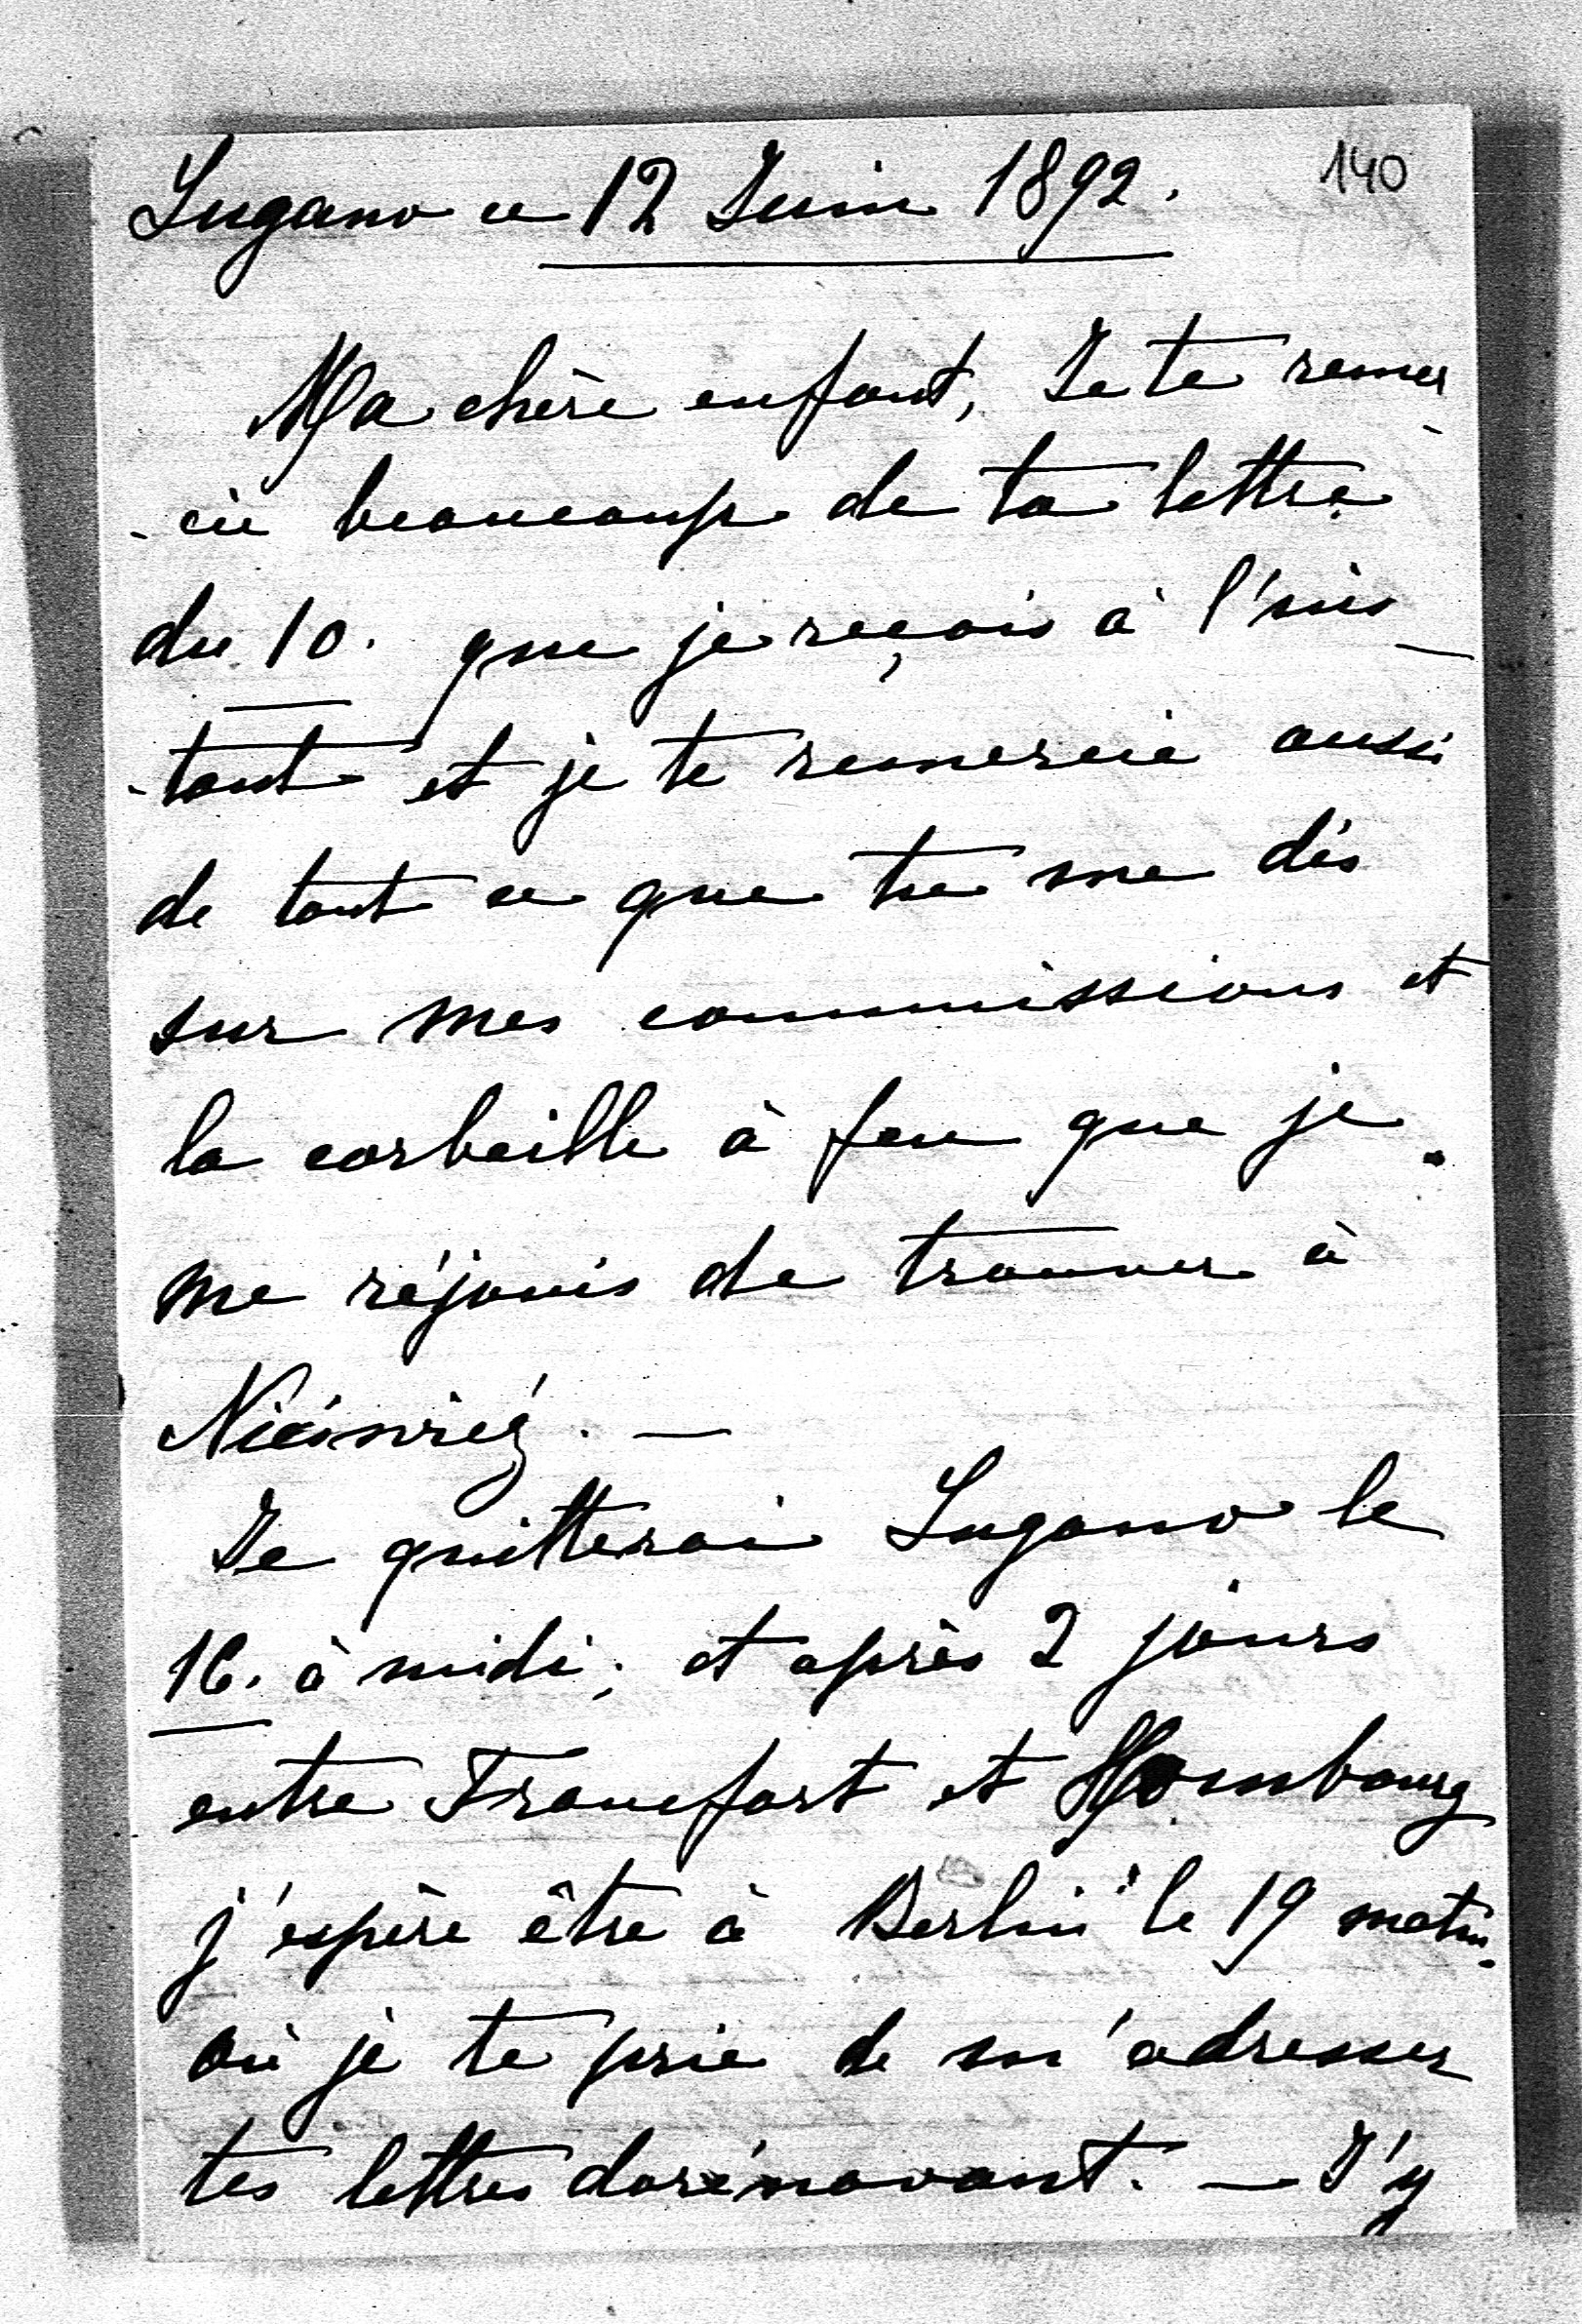 140
Lugano ce 12 Juin 1892.
Ma chère enfant, Je te remer
-cie beaucoup de ta lettre
du 10. que je reçois à l'ins-
-tant et je te remercie aussi
de tout ce que tu me dis
sur mes commissions et
la corbeille à feu que je
me réjouis de trouver à
Nieświéź. —
Je quitterai Lugano le
16. à midi, et après 2 jours
entre Francfort et Hombourg
j'espère être à Berlin le 19 matin.
où je te prie de m'adresser
tes lettres dorénavant. — J'y